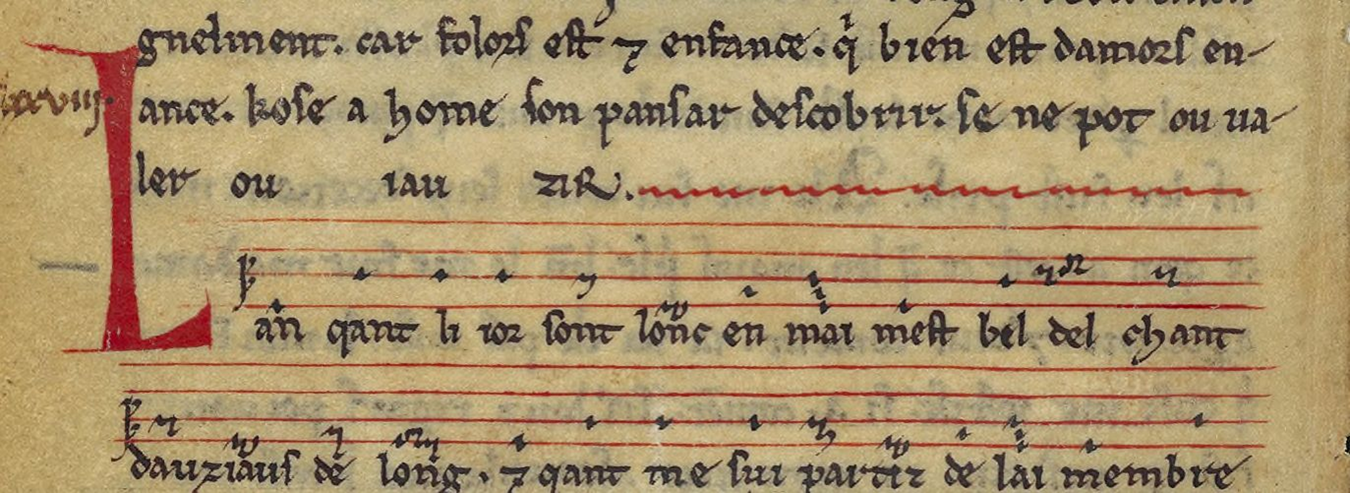 gnelment. car folors est ⁊ enfance. q̃ bien est damors en-
lxxviiij.
ance. kose a home son pansar descobrir. se ne pot ou ua-
ler ou iau zir.
Lan qant li ior sont lonc en mai mest bel del chant
dauziaus de long. ⁊ qant me sui partiz de lai membre